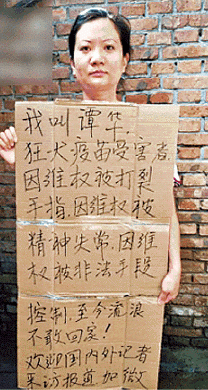 我叫谭华.
狂犬疫苗受害者,
因维权被打裂
手指,因维权被
精神失常,因维
权被非法手段
控制,至今流浪
不敢回家!
欢迎国内外记者
来访报道加微